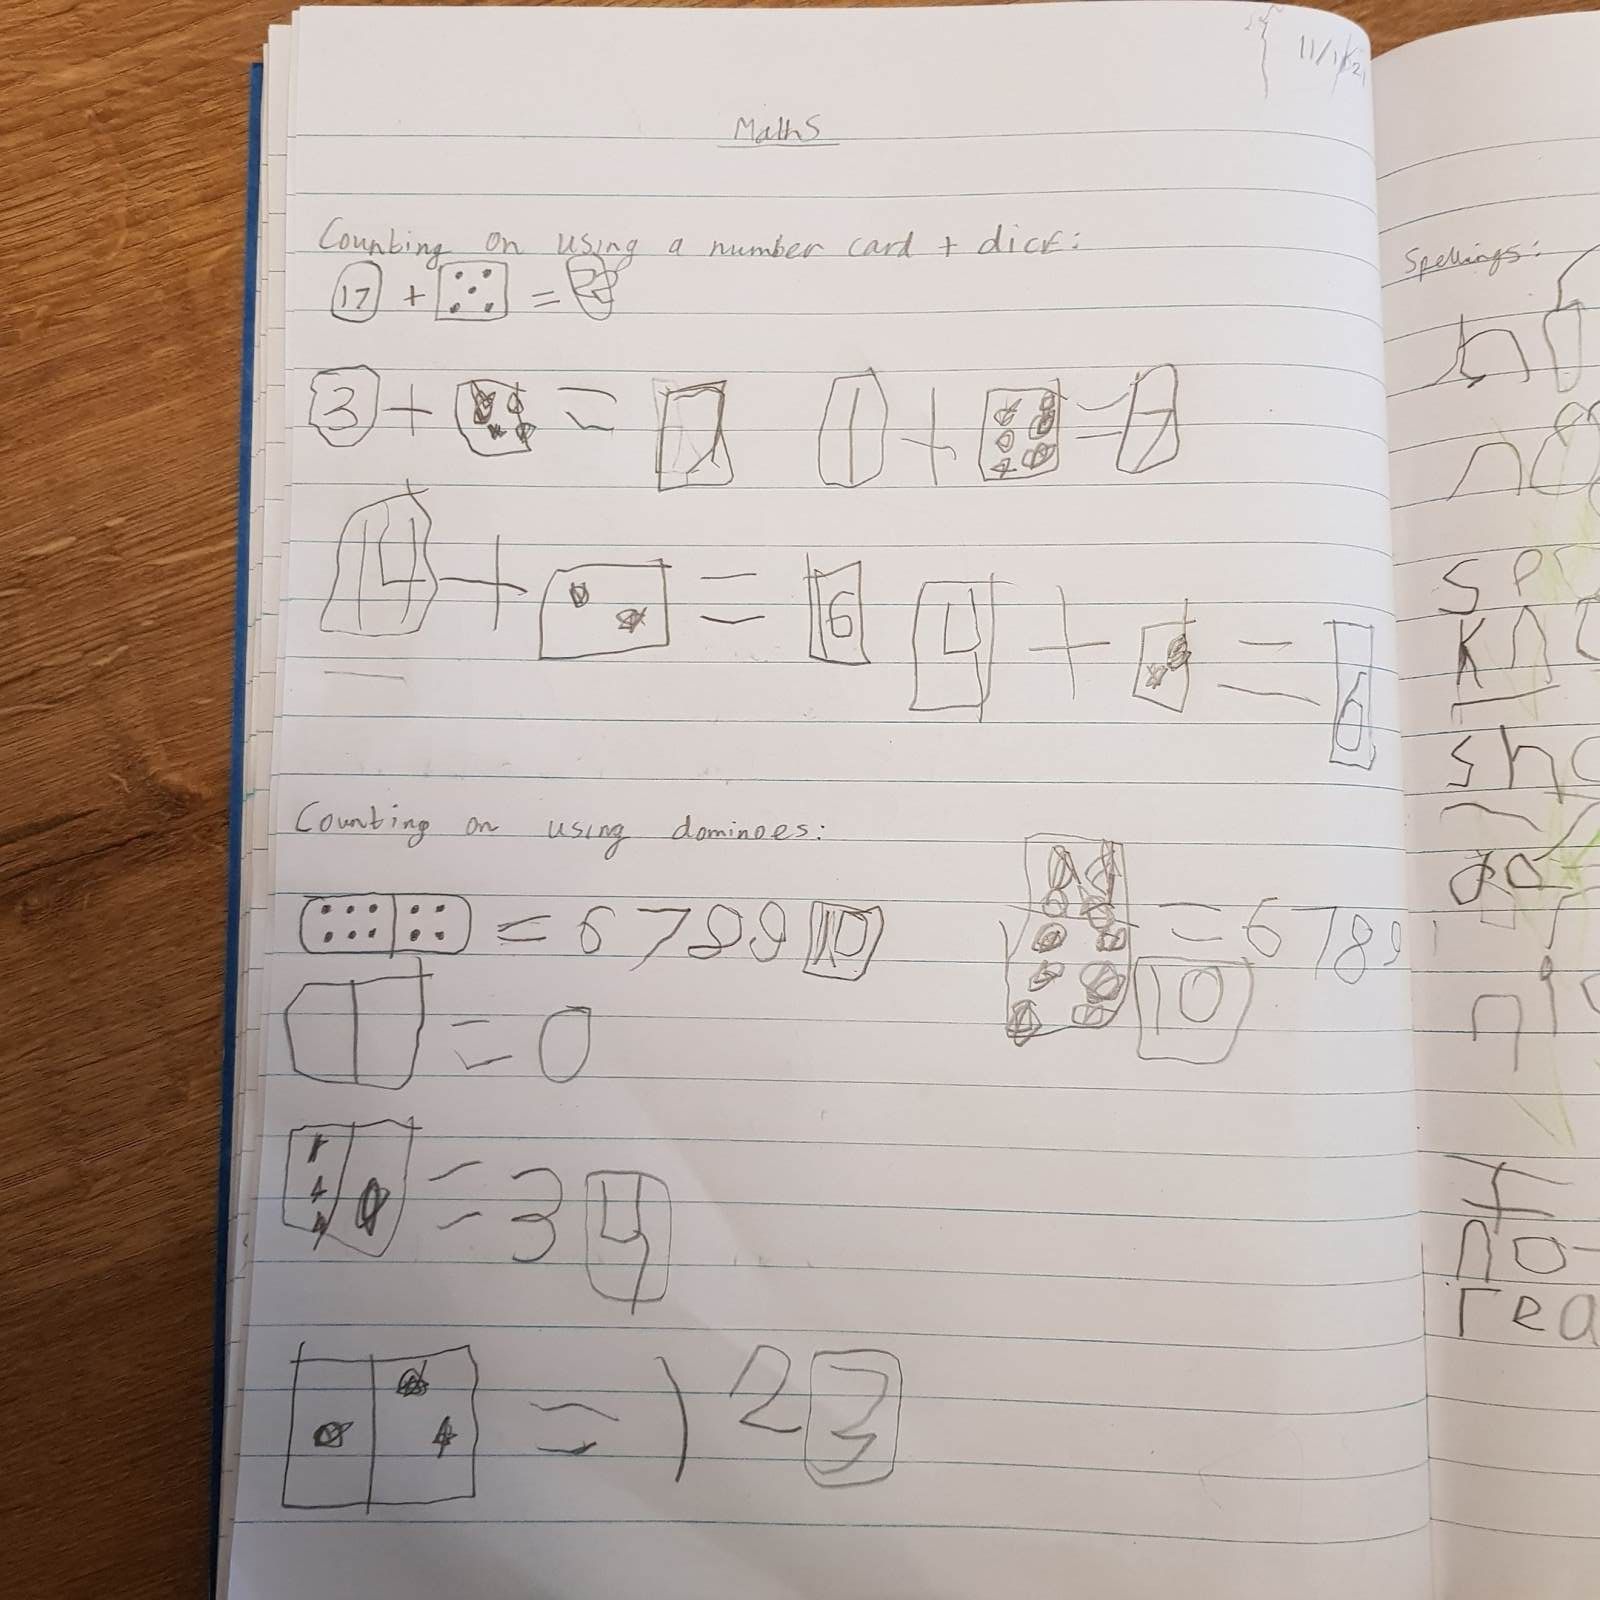 Maths
Counting on using a number card + dice:
17 + = 22
3 + = 7 1 + = 7
14 + = 16 4 + = 6
Counting on using dominoes:
= 6 7 8 9 10 = 6 7 8 9 10
= 0
= 3 4
= 1 2 3
Spellings: